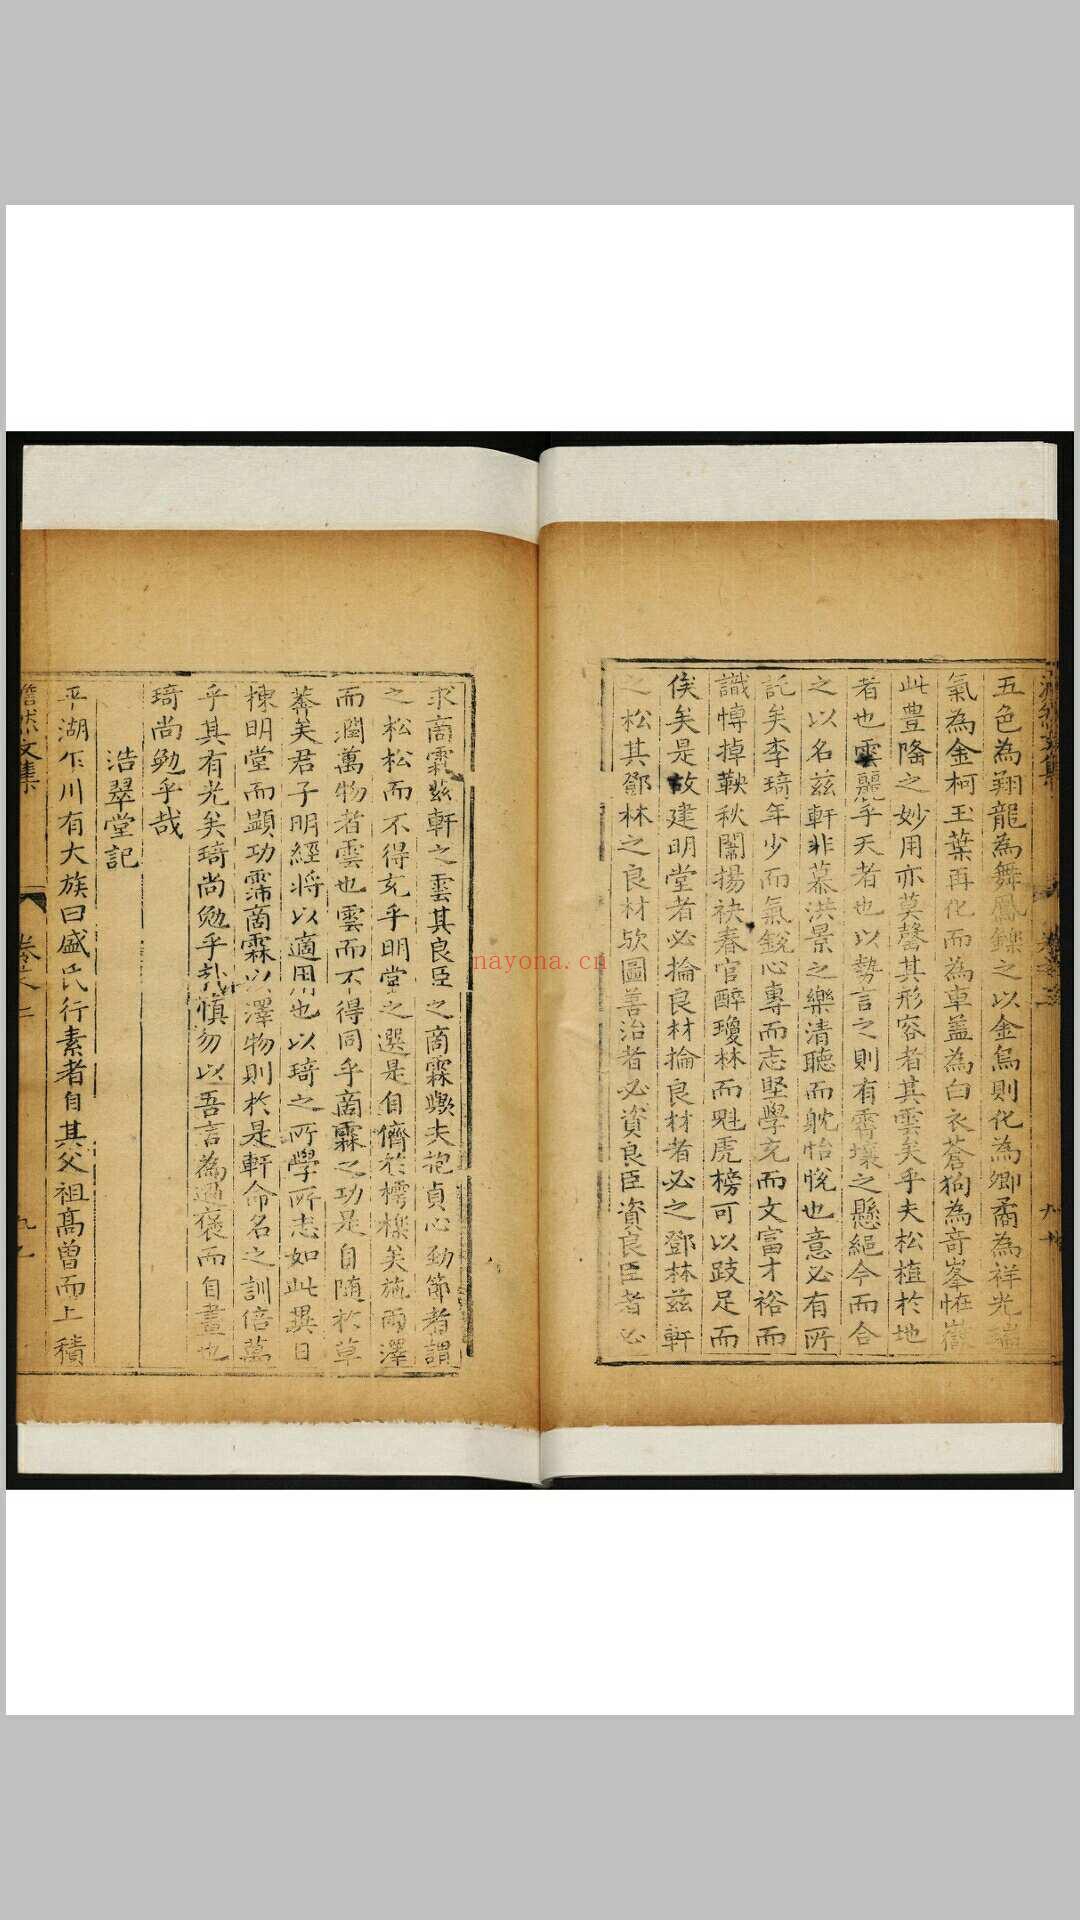 五色為翔龍為舞鳳鑠之以金烏則化為卿矞為祥光瑞
氣為金柯玉葉再化而為車蓋為白衣蒼狗為奇峯恠嶽
此豊隆之妙用亦莫罄其形容者其雲矣乎夫松植於地
者也雲麗乎天者也以勢言之則有霄壤之懸絕今而合
之以名茲軒非慕洪景之樂清聴而躭怡悅也意必有所
託矣李琦年少而氣銳心專而志堅學充而文富才裕而
識慱掉鞅秋闈揚袂春官醉瓊林而魁虎榜可以跂足而
俟矣是故建明堂者必掄良材掄良材者必之鄧林茲軒
之松其鄧林之良材欤圖善治者必資良臣資良臣者必
求商霖茲軒之雲其良臣之商霖歟夫抱貞心勁節者謂
之松松而不得充乎明堂之選是自儕於樗櫟矣施雨澤
而澷萬物者雲也雲而不得同乎商霖之功是自随於草
莽矣君子明經将以適用也以琦之所學所志如此異日
棟明堂而顯功霈商霖以澤物則於是軒命名之訓倍萬
乎其有光矣琦尚勉乎哉慎勿以吾言為過褒而自畫也
琦尚勉乎哉
浩翠堂記
平湖乍川有大族曰盛氏行素者自其父祖髙曾而上積
澹然文集
卷之二
nayona.cn